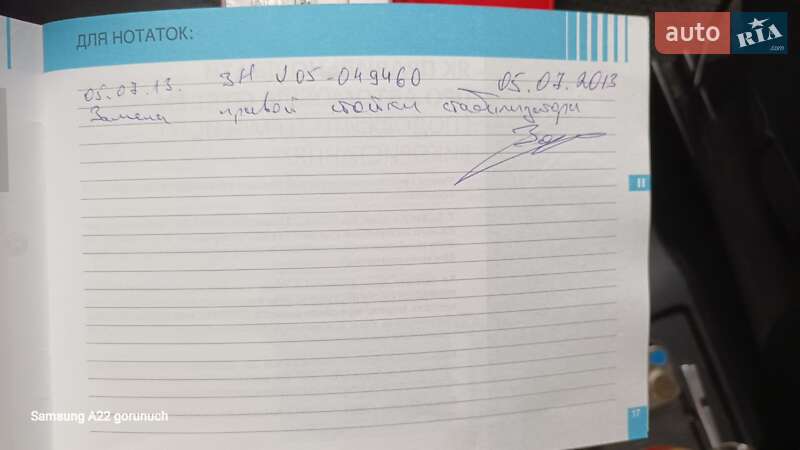 ДЛЯ НОТАТОК:
auto RIA.com
05.07.13. ЗН V05-049460 05.07.2013
Замена правой стойки стабилизатора
II
17
Samsung A22 gorunuch